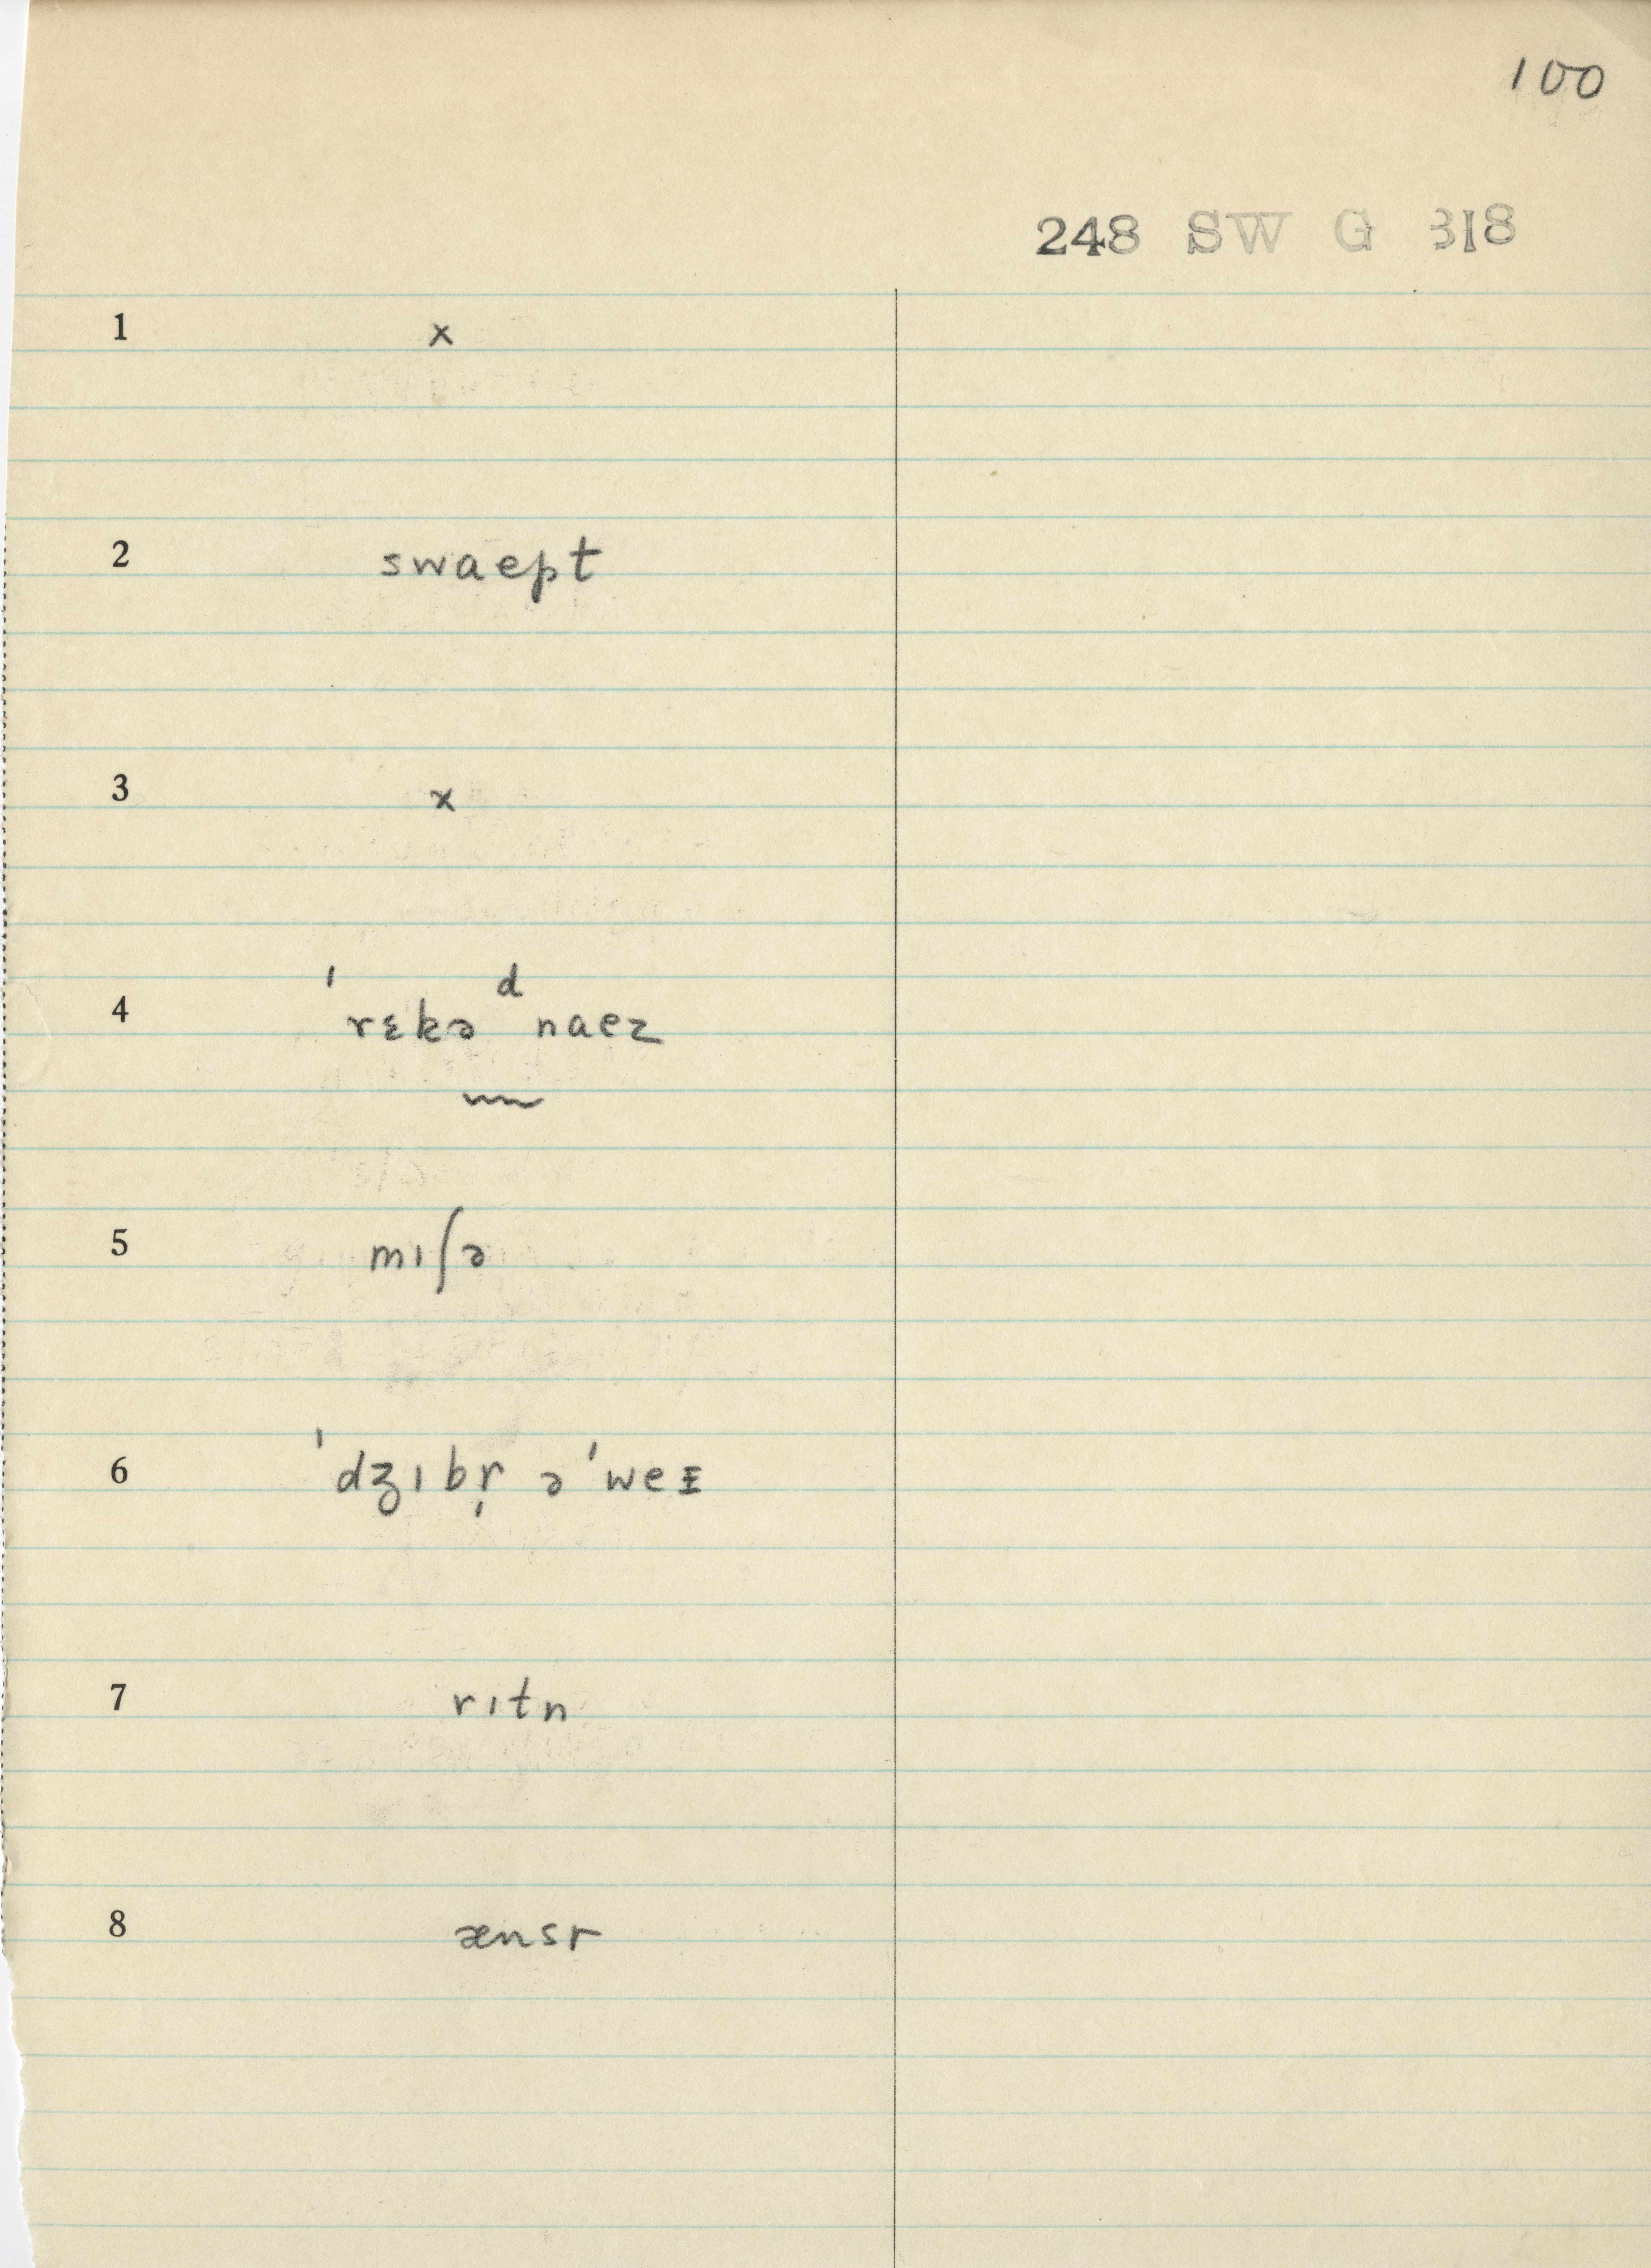 100
248 SW G 318
1 x
2 swaept
3 x
4 ˈrɛkəᵈnaez
5 mıʃə
6 ˈdʒıbr̩ əˈweɪ
7 rıtn
8 ænsr